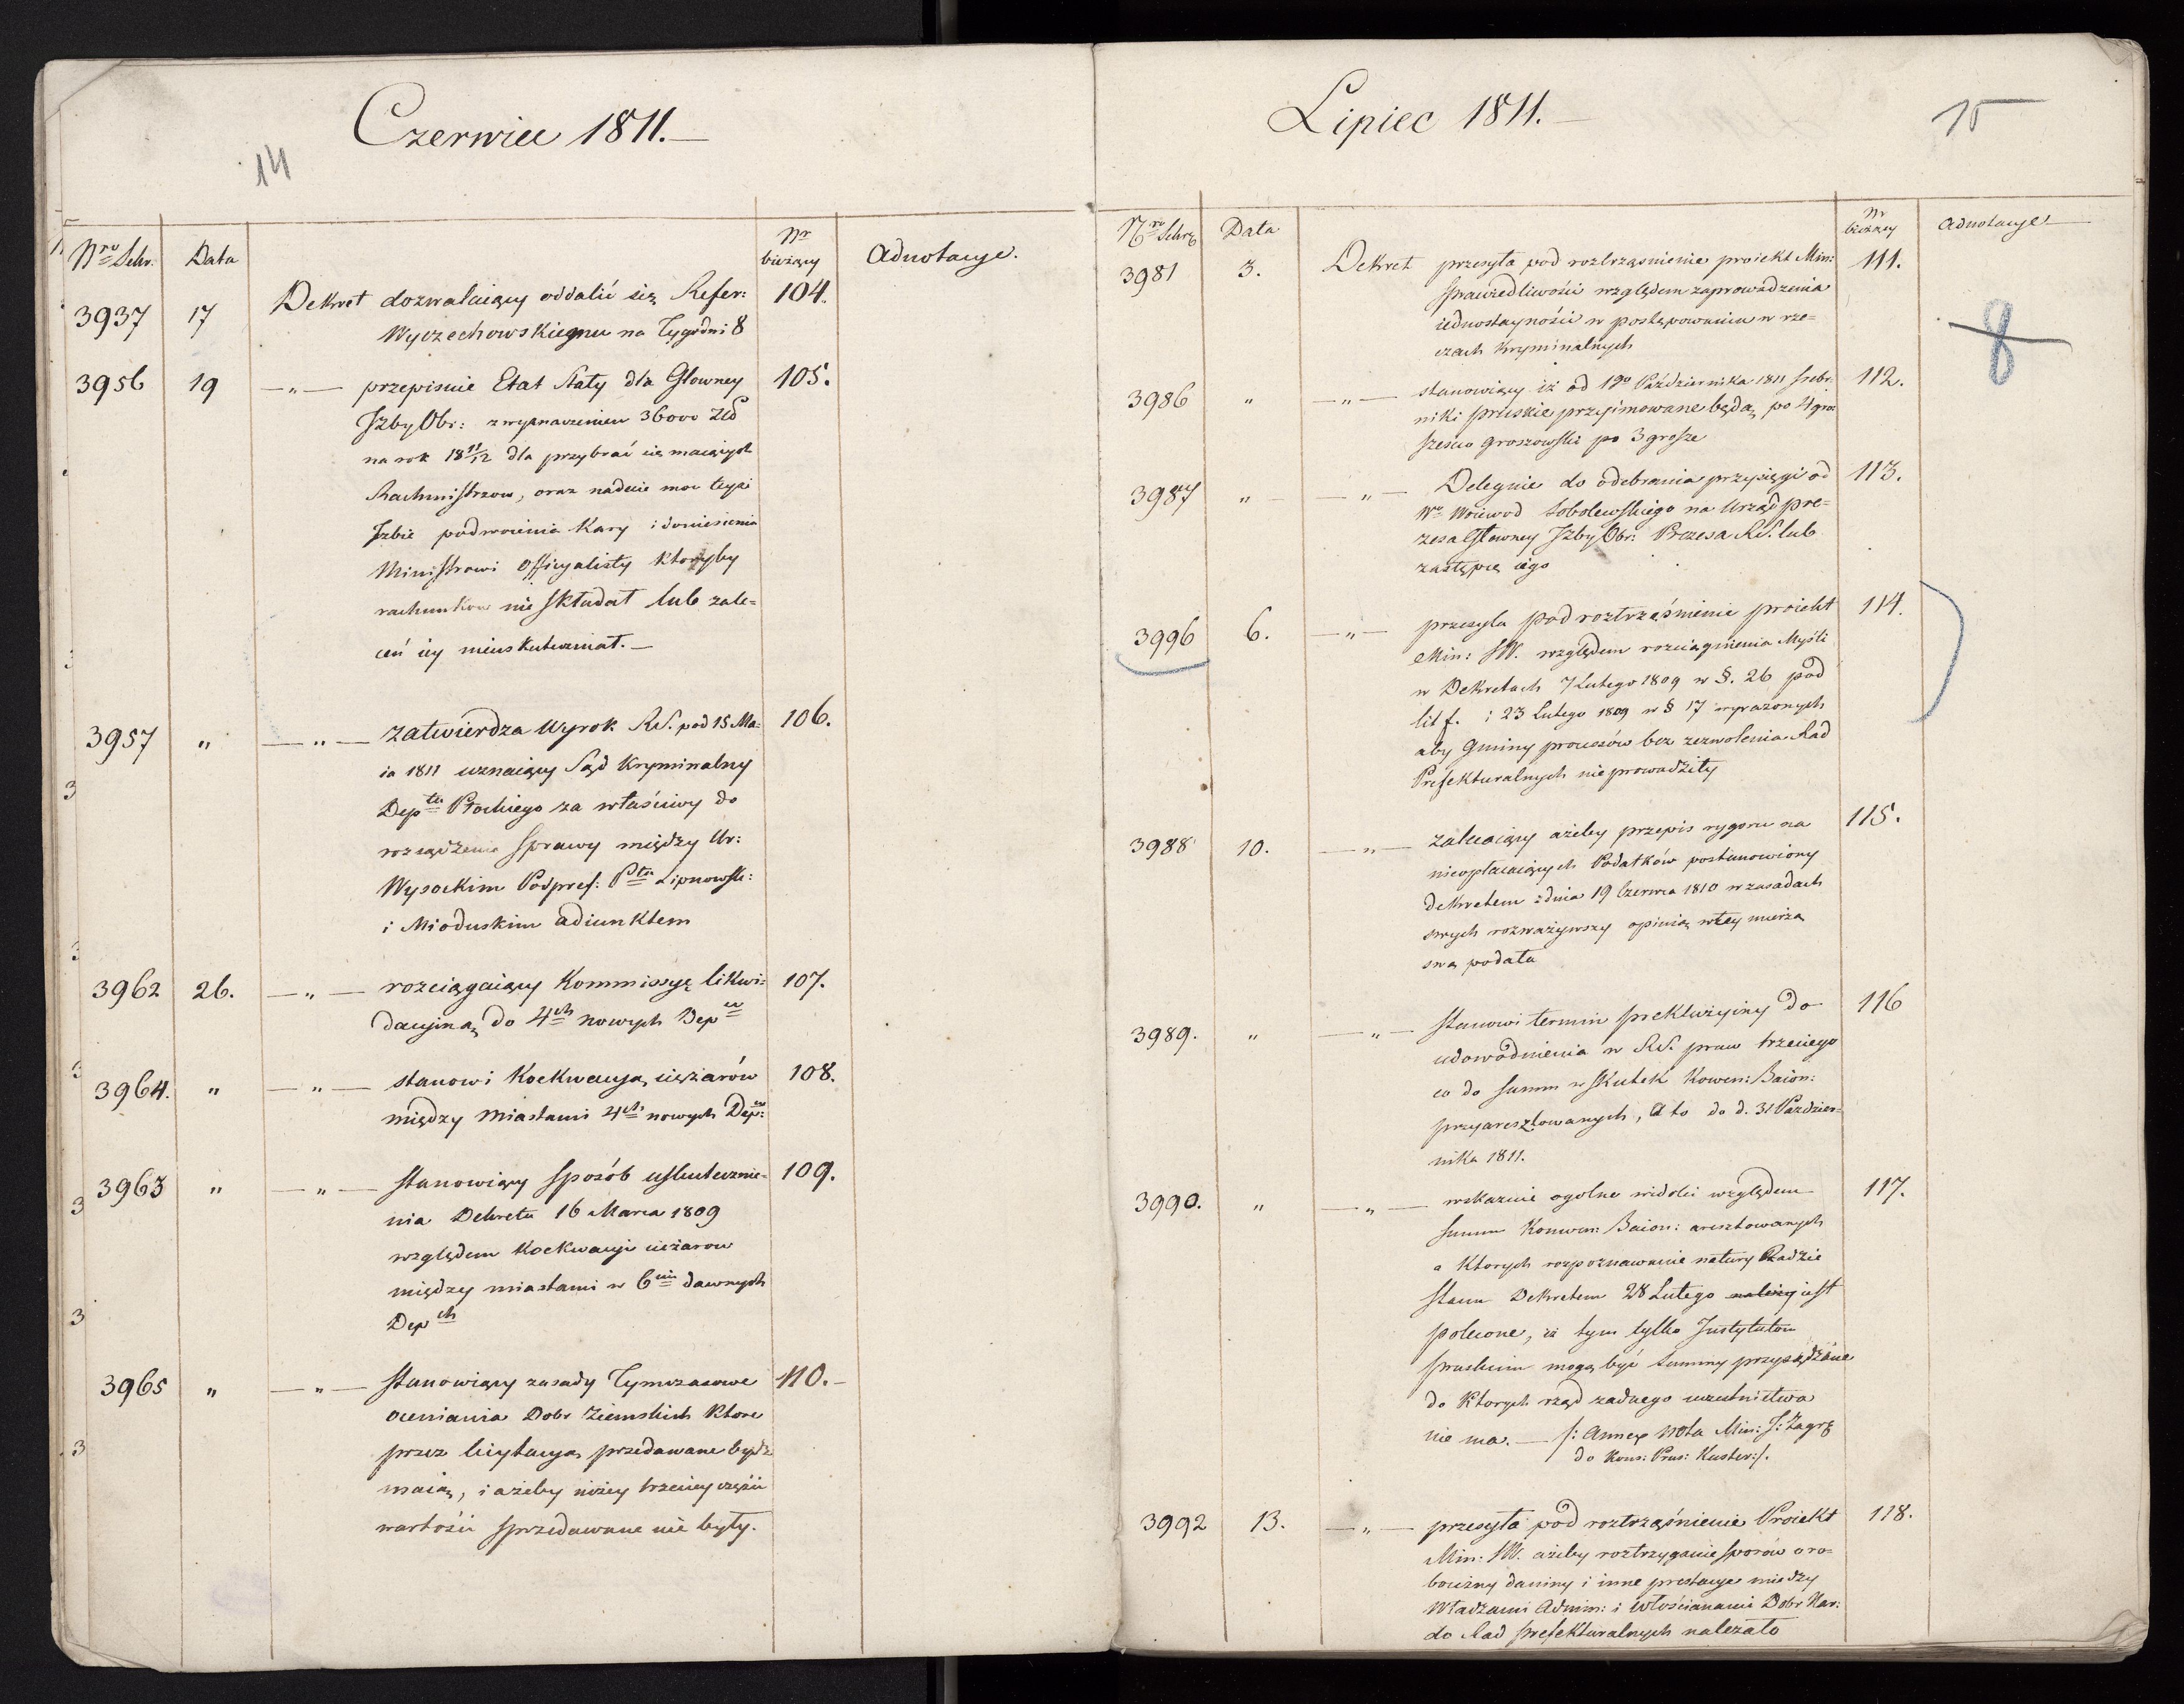 Czerwiec 1811.
14
Nro Schr. Data Nr bieżący Adnotacye.
3937 17 Dekret dozwalaiący oddalić się Refer: 104.
Wyczechowskiemu na Tygodni 8
3956 19 —„— przepisuie Etat Płaty dla Głowney 105.
Izby Obr: z wyznaczeniem 36000 Złd
na rok 18 11/12 dla przybrać się maiących
Rachmistrzow, oraz nadaie moc teyże
Izbie podwoienia Kary i doniesienia
Ministrowi Officyalisty ktoryby
rachunkow nie składał lub zale=
ceń iey nieuskuteczniał.—
3957 „ —„— zatwierdza Wyrok RS. pod 15 Ma= 106.
ia 1811 uznaiący Sąd Kryminalny
Deptu Płockiego za właściwy do
rozsądzenia Sprawy między Ur:
Wysockim Podpref: Ptu Lipnowsk:
i Mioduskim adiunktem
3962 26. —„— rozciągaiący Kommissyę likwi= 107.
dacyiną do 4ch nowych Dep
3964. „ —„— stanowi Koekwacyą ciężarów 108.
między Miastami 4ch nowych Dep:
3963 „ —„— stanowiący sposób uskutecznie= 109.
nia Dekretu 16 Marca 1809
względem Koekwacyi ciężarow
między miastami w 6ciu dawnych
Depch
3965 „ —„— stanowiący zasady Tymczasowe 110.—
oceniania Dobr Ziemskich ktore
przez licytacyą przedawane bydź
maią, i ażeby niżey trzeciey części
wartości sprzedawane nie były.
Lipiec 1811.—
15
Nro Schr Data Nr bieżący Adnotacye
3981 3. Dekret przesyła pod roztrząsnienie proiekt Min: 111.
Sprawiedliwości względem zaprowadzenia
iednostayności w postępowaniu w rze=
czach Kryminalnych
8
3986 „ —„— stanowiący iż od 1go Października 1811 srebr. 112.
niki pruskie przyimowane będą po 4 gro
sześcio groszowki po 3 grosze
3987 „ —„— Deleguie do odebrania przysięgi od 113.
Wo Woiewod Sobolewskiego na Urząd pre=
zesa Głowney Izby Obr: Prezesa RS. lub
zastępcę iego
3996 6. —„— przesyła pod roztrząśnienie proiekt 114.
Min: SW. względem rozciągnienia Myśli
w Dekretach 7 Lutego 1809 w §. 26 pod
lit f. i 23 Lutego 1809 w § 17 wyrażonych
aby Gminy processów bez zezwolenia Rad
Prefekturalnych nie prowadziły
3988 10. —„— zalecaiący ażeby przepis rygoru na 115.
nieopłacaiących Podatków postanowiony
dekretem z dnia 19 Czerwca 1810 w zasadach
swych rozważywszy opinią w tey mierze
swą podała
3989. „ —„— stanowi termin prekluzyiny do 116
udowodnienia w RS. praw trzeciego
co do summ w skutek Konwen: Baion:
przyaresztowanych, a to do d. 31 Paździer=
nika 1811.
3990. „ —„— wskazuie ogolne widoki względem 117.
summ Konwen: Baion: aresztowanych
a ktorych rozpoznawanie natury Radzie
Stanu Dekretem 28 Lutego należy iest
polecone, iż tym tylko Instytutom
pruskim mogą być Summy przysądzone
do ktorych rząd żadnego uczestnictwa
nie ma.— /: Annex Nota Min: S: Zagr
do Kons: Prus: Kuster :/.
3992 13. —„— przesyła pod roztrząśnienie Proiekt 118.
Min: SW. ażeby roztrzyganie sporów o ro=
bocizny daniny i inne prestacye między
Władzami Admin: i Włościanami Dobr Nar:
do Rad prefekturalnych należało